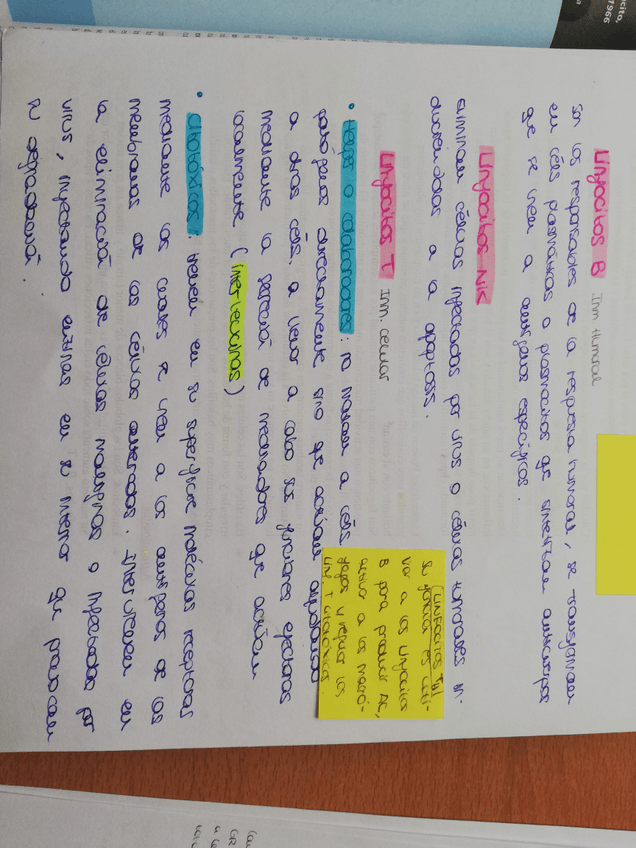 Linfocitos B Inm. Humoral
Son los responsables de la respuesta humoral, se transforman
en céls plasmáticas o plasmocitos que sintetizan anticuerpos
que se unen a antígenos específicos.
Linfocitos NK
eliminan células infectadas por virus o células tumorales in-
duciéndolas a la apoptosis.
Linfocitos T Inm. celular
• Helper o colaboradores: no matan a céls
patógenas directamente sino que actúan ayudando
a otras céls. a llevar a cabo sus funciones efectoras
mediante la de mediadores que actúan
localmente (interleucinas)
• Citotóxicos: tienen en su superficie moléculas receptoras
mediante los cuales se unen a los antígenos de las
membranas de las células alteradas. Intervienen en
la eliminació de células malignas o infectadas por
virus, inyectando enzimas en su interior que provocan
su degradación.
(LINFOCITOS TH)
su función es acti-
var a los linfocitos
B para producir Ac,
activar a los macró-
fagos y reclutar los
Linf T citotóxicos.
cícito,
1966